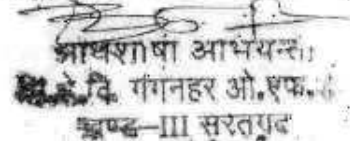 अधिशाषी अभियन्ता
वि. गंगनहर ओ.एफ.
खण्ड-III सूरतगढ